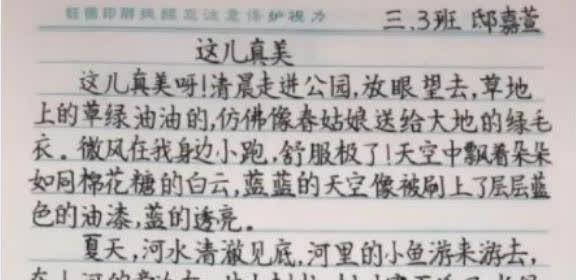 注意保护视力
三.3班 邸嘉萱
这儿真美
这儿真美呀!清晨走进公园,放眼望去,草地
上的草绿油油的,仿佛像春姑娘送给大地的绿毛
衣。微风在我身边小跑,舒服极了!天空中飘着朵朵
如同棉花糖的白云,蓝蓝的天空像被刷上了层层蓝
色的油漆,蓝的透亮。
夏天,河水清澈见底,河里的小鱼游来游去,